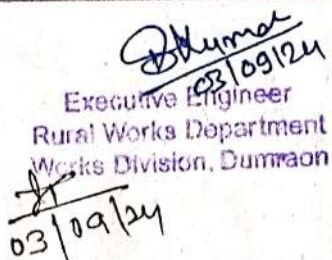 BKumar
03/09/24
Executive Engineer
Rural Works Department
Works Division, Dumraon
03/09/24